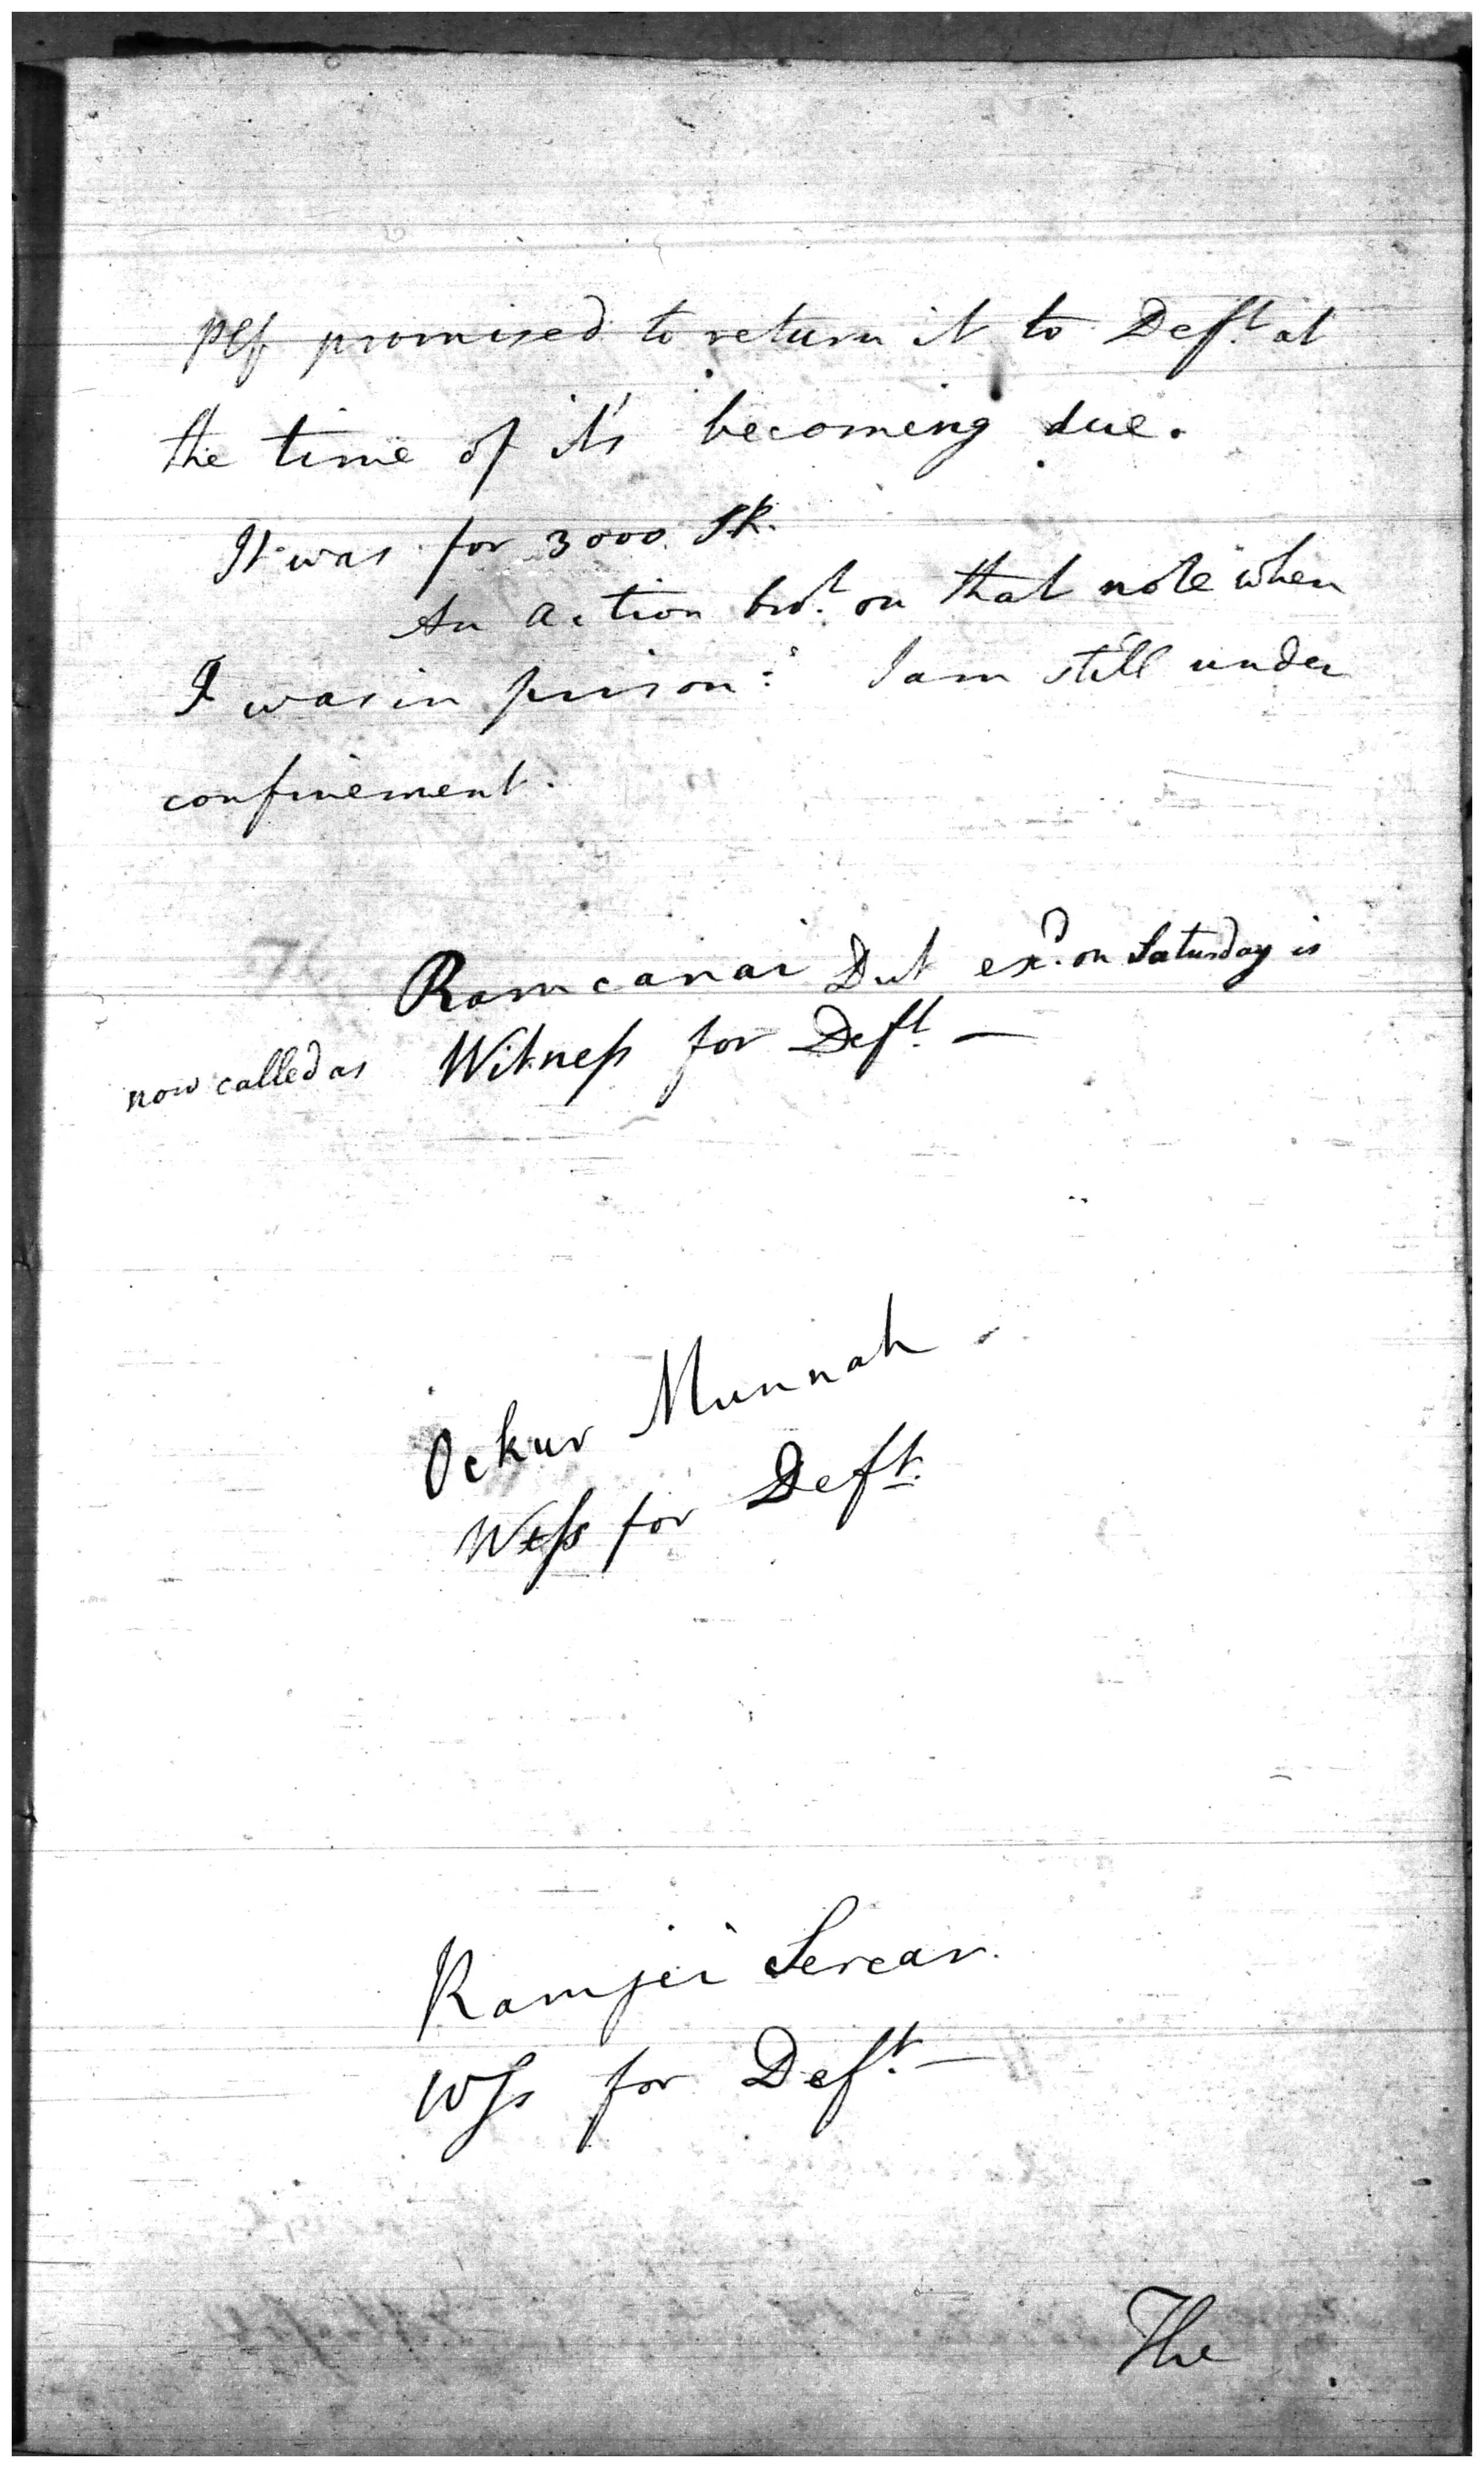 Plf promised to return it to Deft. at
the time of it's becoming due.
It was for 3000 SR.
An action brot. on that note when
I was in prison: I am still under
confinement.
Ramcanai Dut exd. on Saturday is
now called as Witness for Deft. —
Ockur Munnah
Wtss for Deft.
Ramjei Sercar.
Wss for Deft. —
The